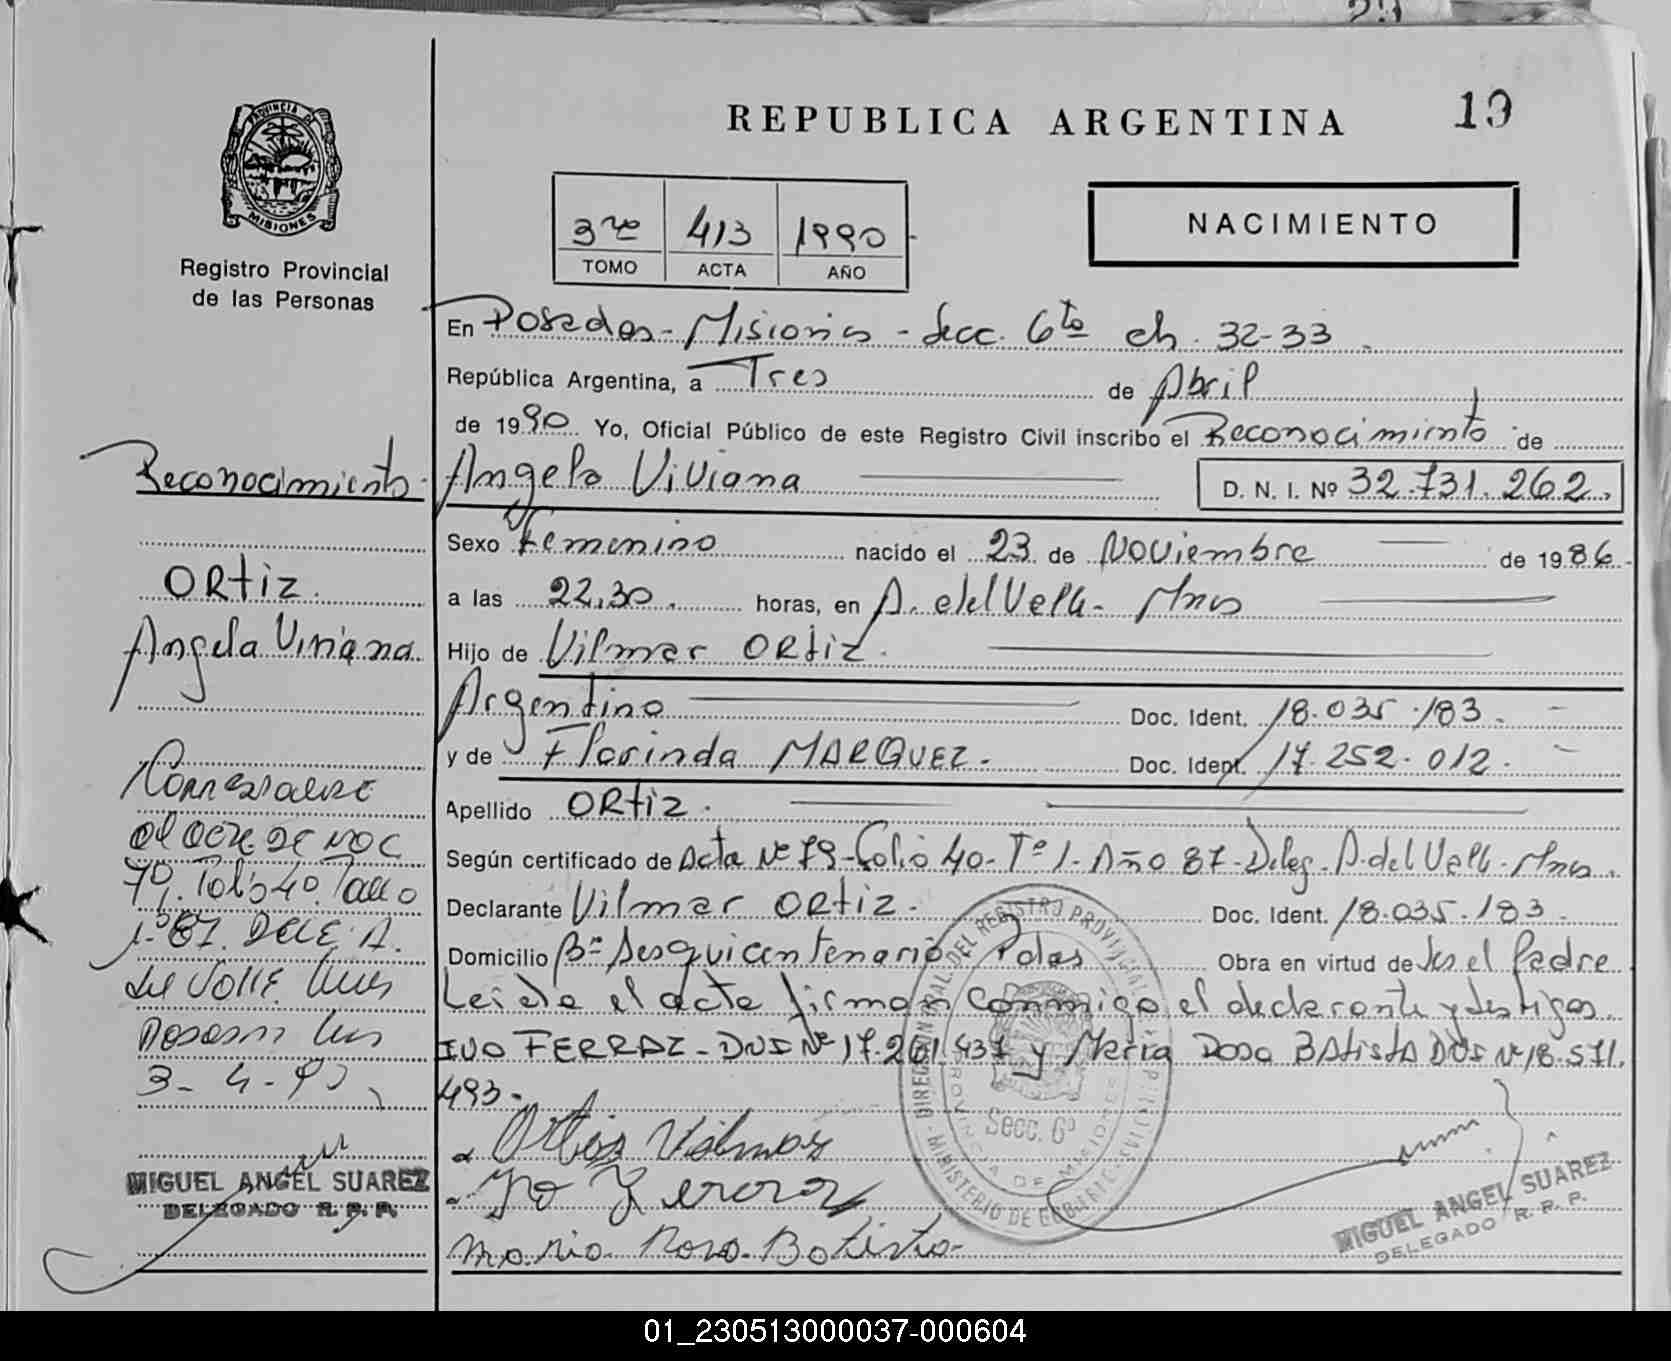 REPUBLICA ARGENTINA
19
PROVINCIA DE
MISIONES
Registro Provincial
de las Personas
3ro 413 1990
TOMO ACTA AÑO
NACIMIENTO
En Posadas - Misiones - Secc. 6ta ch. 32-33
República Argentina, a Tres de Abril
de 1990. Yo, Oficial Público de este Registro Civil inscribo el Reconocimiento de
Angela Viviana D. N. I. Nº 32.731.262.
Sexo Femenino nacido el 23 de Noviembre de 1986.
a las 22,30. horas, en A. del Valle - Mnes
Hijo de Vilmar ORtiz.
Argentino Doc. Ident. 18.035.183.
y de Florinda MARQUEZ. Doc. Ident. 17.252.012.
Apellido ORtiz.
Según certificado de Acta Nº 79 - Folio 40 - Tº 1 - Año 87 - Deleg. A. del Valle - Mnes.
Declarante Vilmar ORtiz. Doc. Ident. 18.035.183.
Domicilio Bº Sesquicentenario Pdas Obra en virtud de ser el Padre
Leida el acta firman conmigo el declarante y testigos.
IVO FERRAZ - DNI Nº 17.261.437 y Maria Rosa BAtistA DNI Nº 18.571.
493.
Ortiz Vilmar
Ivo Ferraz
Maria Rosa Batista
Secc. 6ª
MIGUEL ANGEL SUAREZ
DELEGADO R. P. P.
Reconocimiento.
ORtiz.
Angela Viviana
Corresponde
al acta de NOC
79. Folio 40. Tomo
1º 87. DELE. A.
del Valle Mnes
Posadas Mns
3-4-90
MIGUEL ANGEL SUAREZ
DELEGADO R. P. P.
01_230513000037-000604